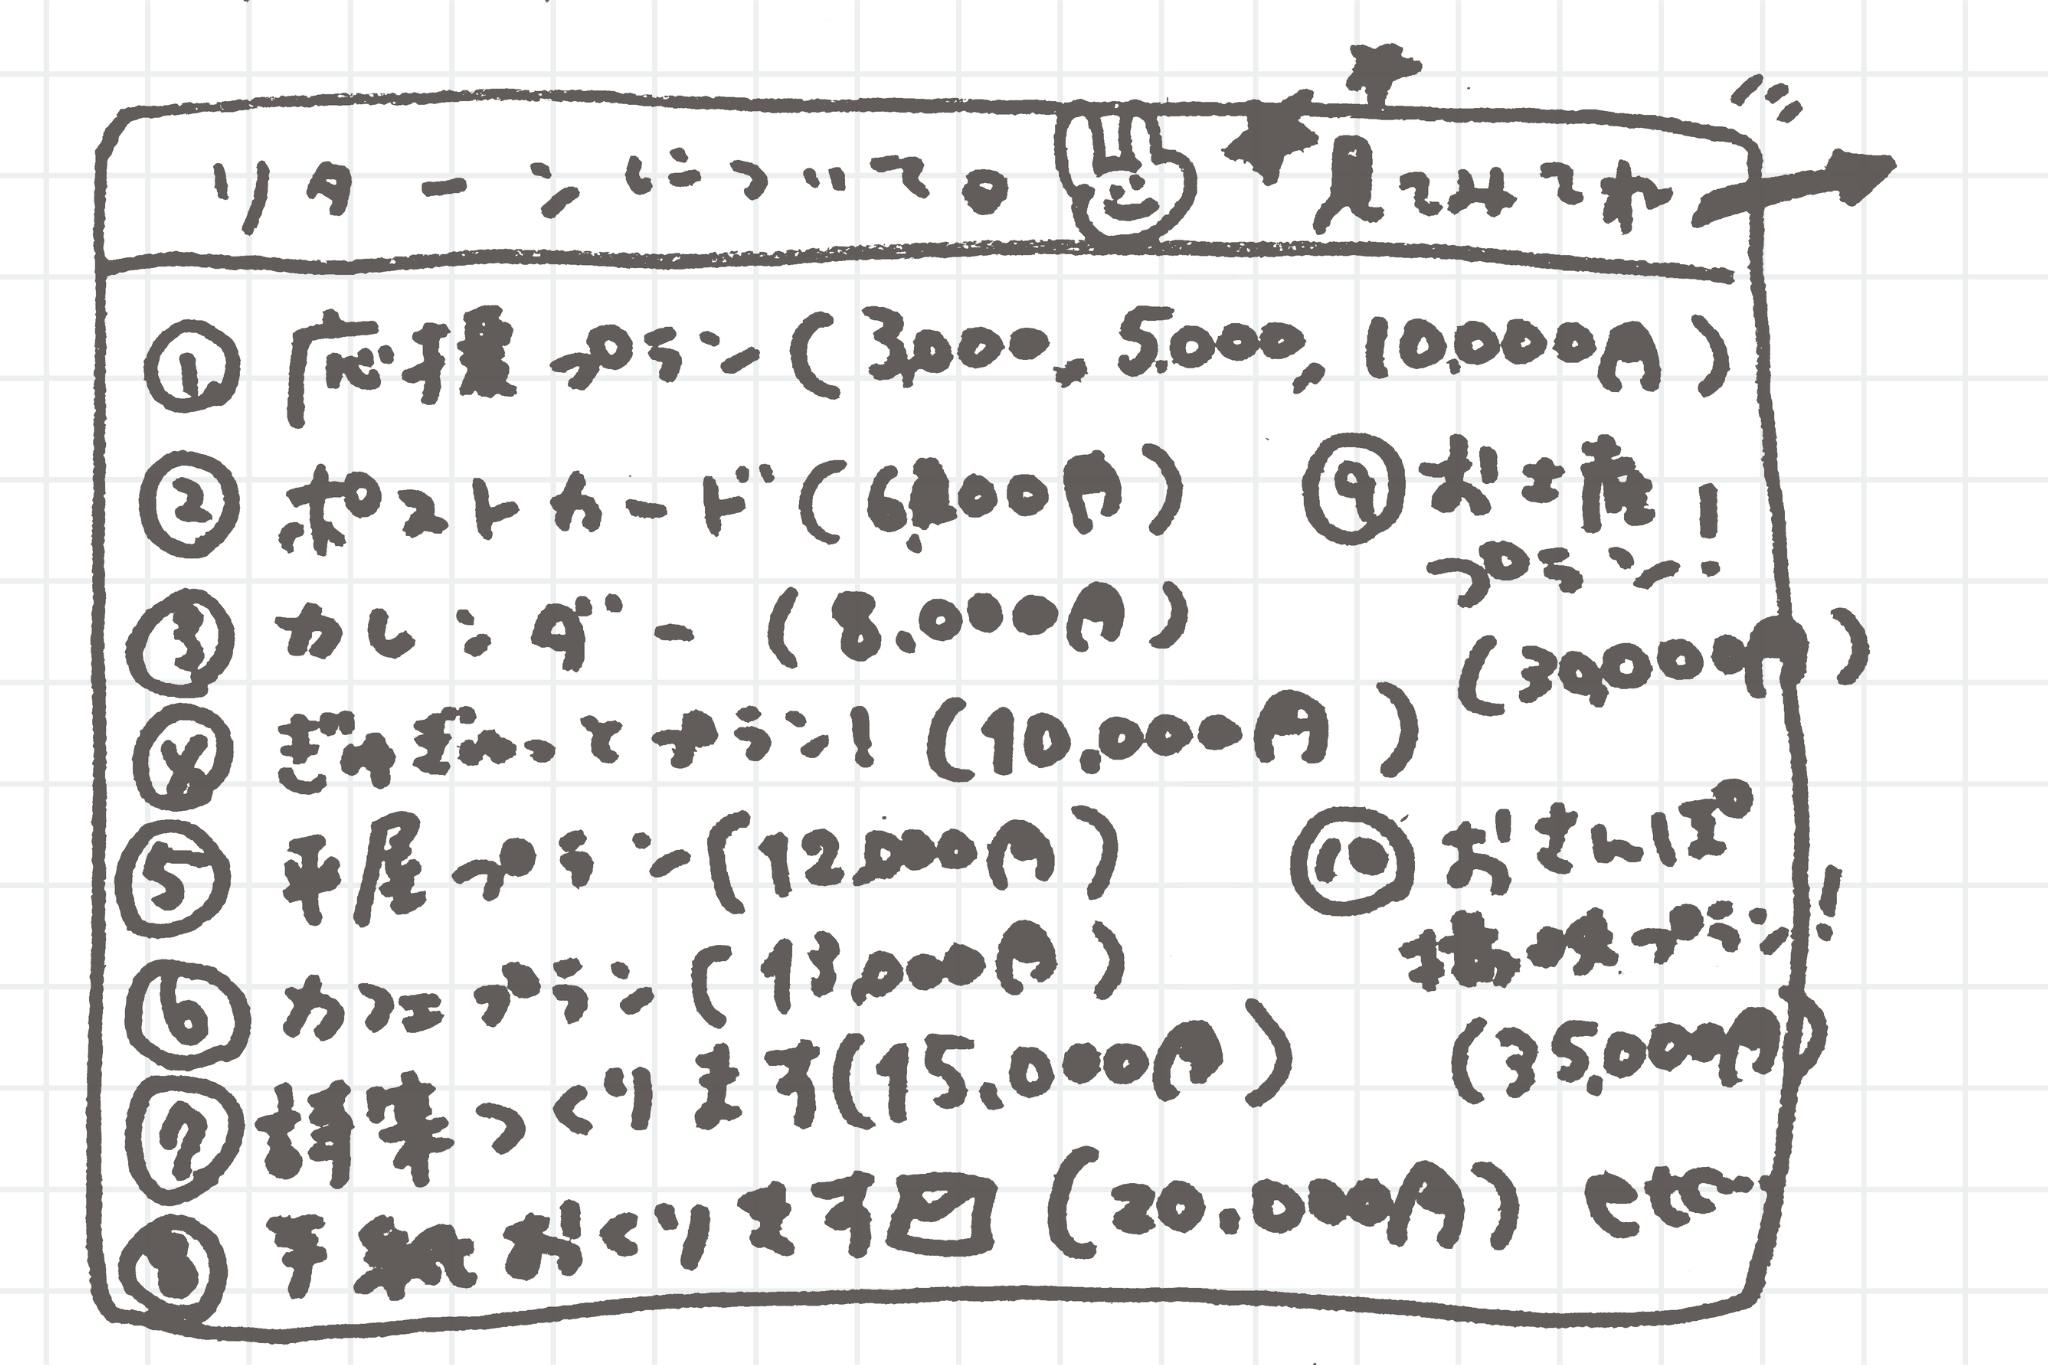 リターンについて。 見てみてね
① 応援プラン(3,000, 5.000, 10.000円)
② ポストカード(6.000円)
③ カレンダー (8.000円)
④ ぎゅぎゅっとプラン! (10.000円)
⑤ 平屋プラン(12,000円)
⑥ カフェプラン(13,000円)
⑦ 詩集つくります(15.000円)
⑧ 手紙おくります (20.000円) etc…
⑨ お土産
プラン!
(30,000円)
⑩ おさんぽ
撮映プラン!
(35.000円)